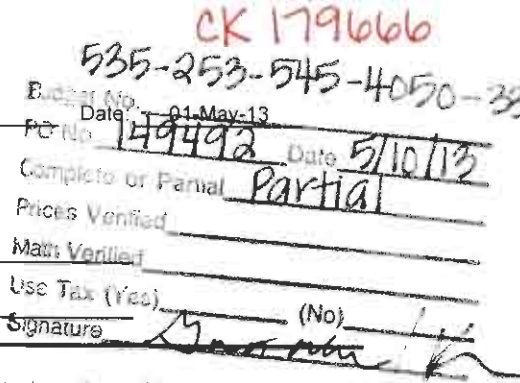 CK 179666
535-253-545-4050-35
Budget No.
Date: 01-May-13
PO No. 149492 Date 5/10/13
Complete or Partial Partial
Prices Verified
Math Verified
Use Tax (Yes) (No)
Signature